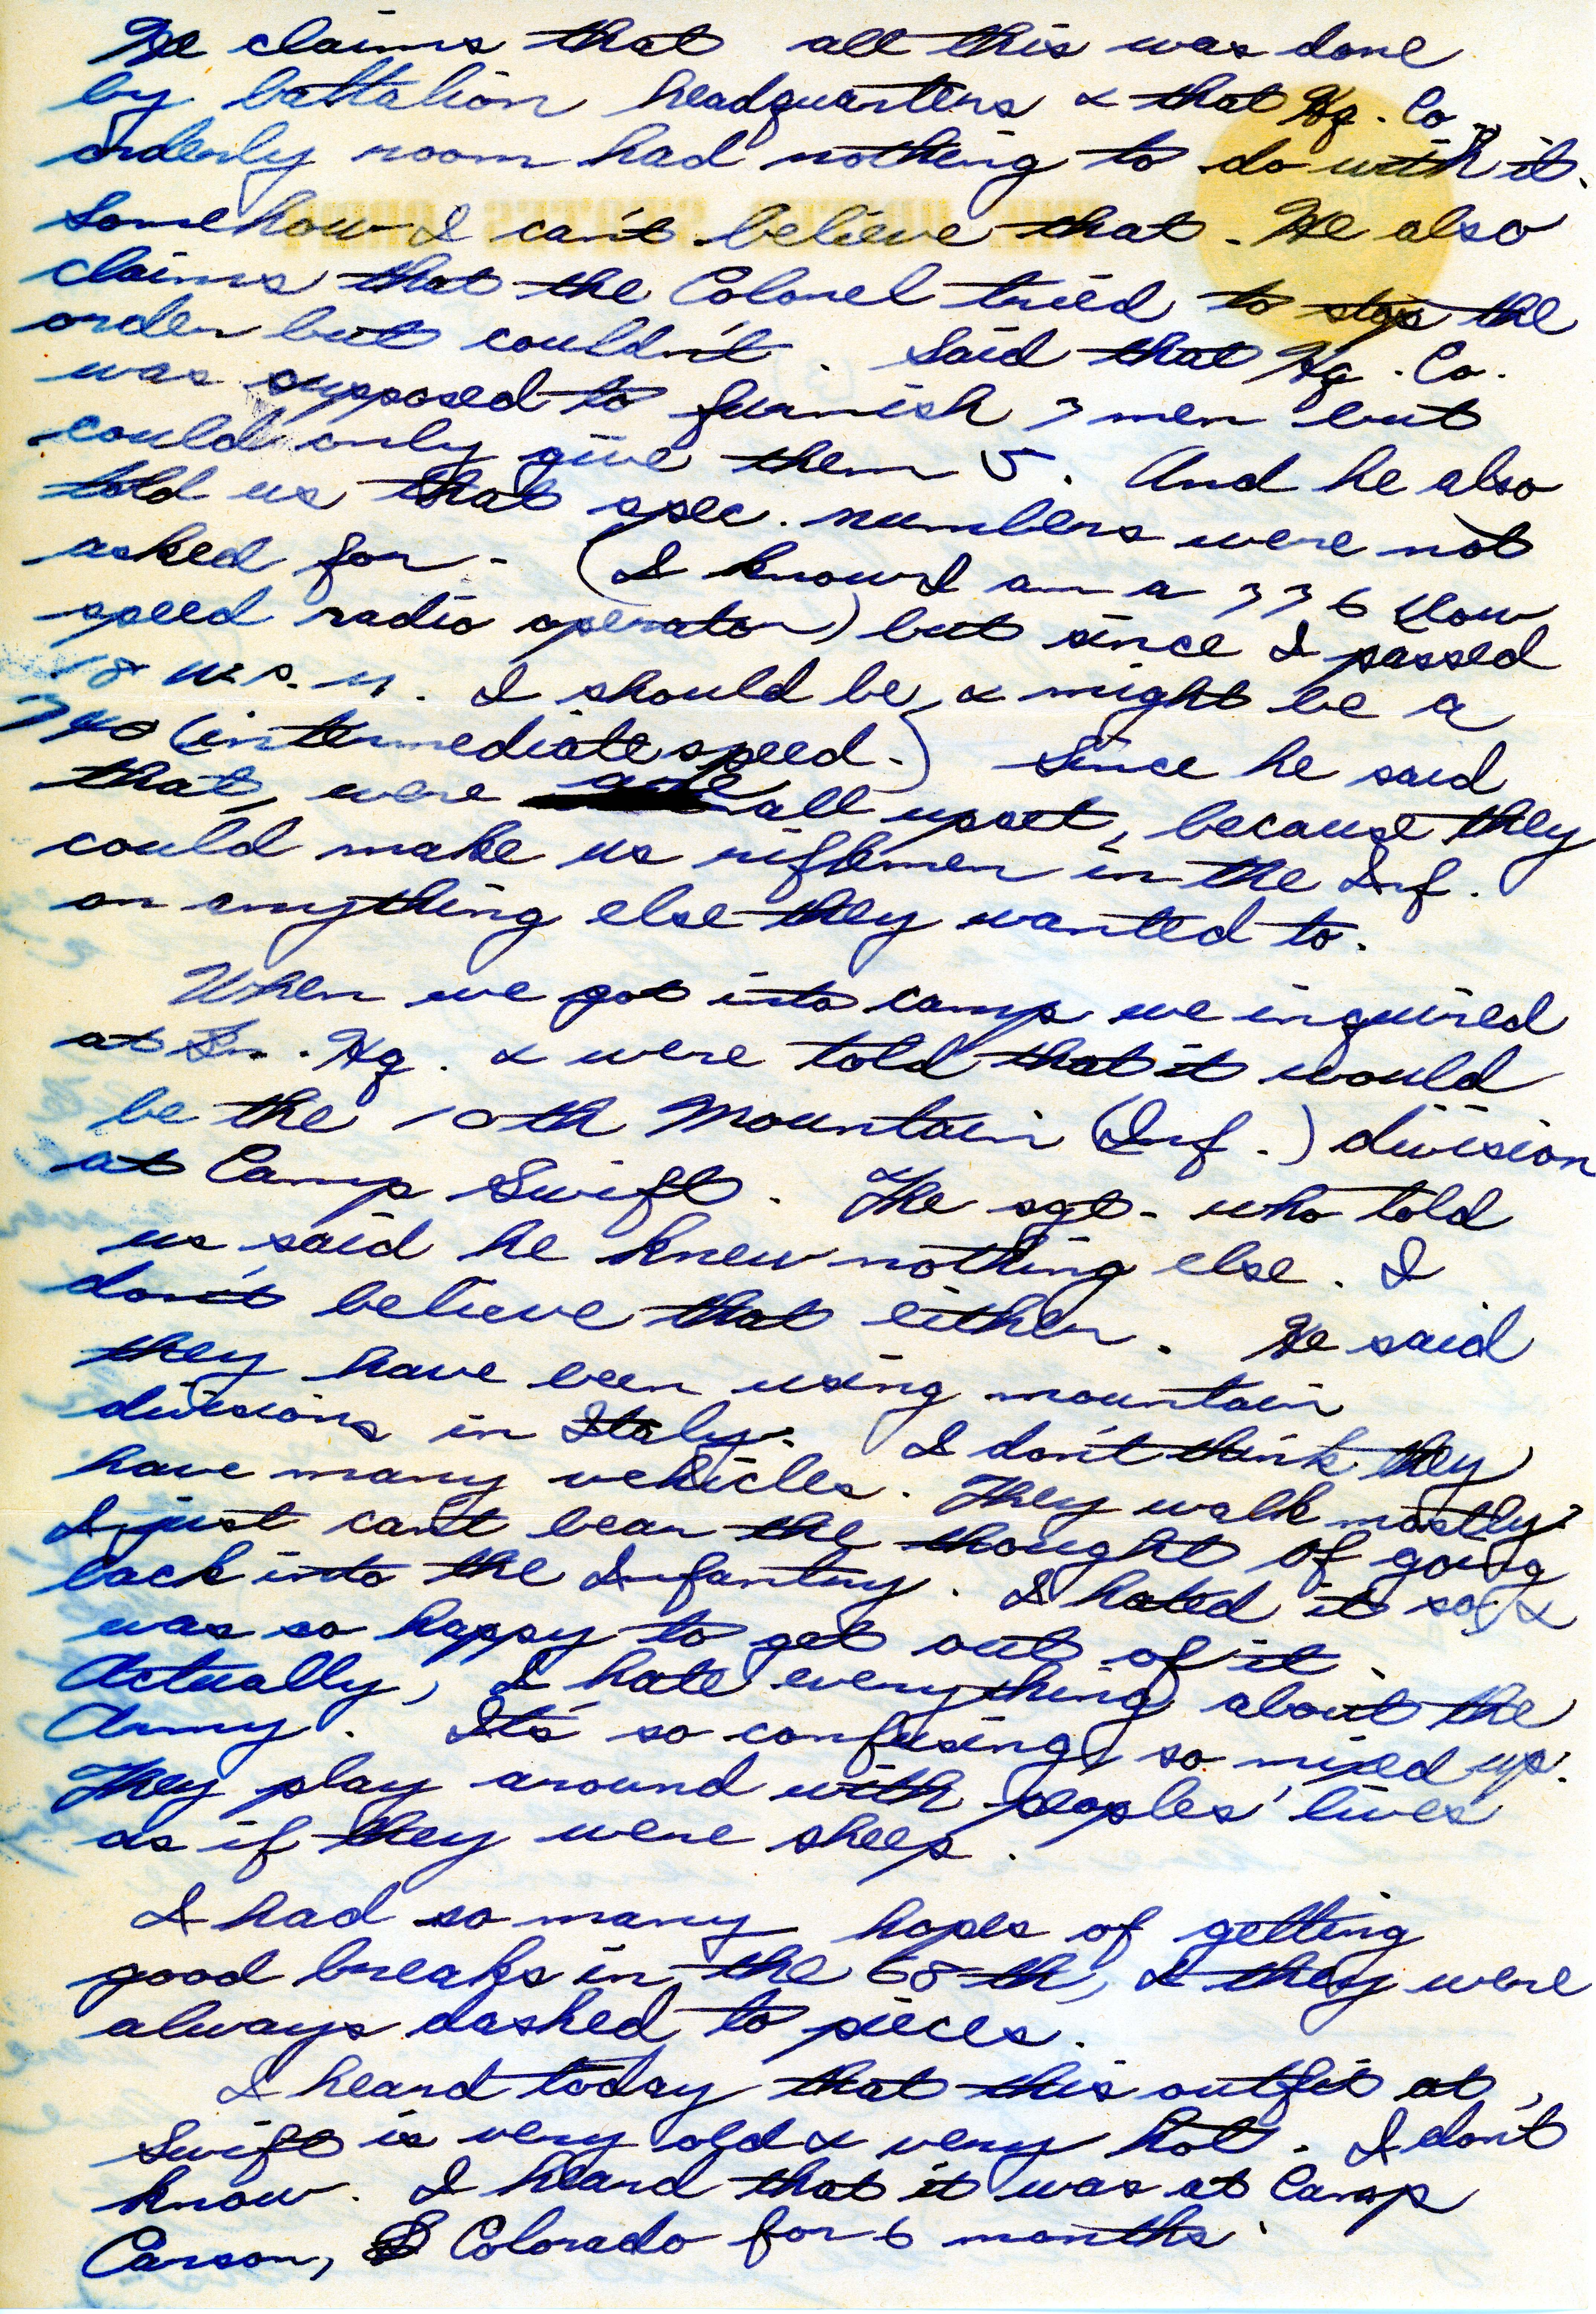 He claims that all this was done
by battalion headquarters & that Hq. Co.
orderly room had nothing to do with it.
Somehow I can't believe that. He also
claims that the Colonel tried to stop the
order but couldn't. Said that Hq. Co.
was supposed to furnish 7 men but
could only give them 5. And he also
told us that spec. numbers were not
asked for. (I know I am a 776 slow
speed radio operator) but since I passed
18 w.p.m. I should be, & might be a
740 (intermediate speed.) Since he said
that, were all upset, because they
could make us riflemen in the Inf.
or anything else they wanted to.
When we got into camp we inquired
at Bn. Hq. & were told that it would
be the 10th Mountain (Inf.) division
at Camp Swift. The sgt. who told
us said he knew nothing else. I
don't believe that either. He said
they have been using mountain
divisions in Italy. I don't think they
have many vehicles. They walk mostly.
I just can't bear the thought of going
back into the Infantry. I hated it so, &
was so happy to get out of it.
Actually, I hate everything about the
Army. It's so confusing, so mixed up.
They play around with peoples' lives
as if they were sheep.
I had so many hopes of getting
good breaks in the 68th, & they were
always dashed to pieces.
I heard today that this outfit at
Swift is very old & very hot. I don't
know. I heard that it was at Camp
Carson, Colorado for 6 months.